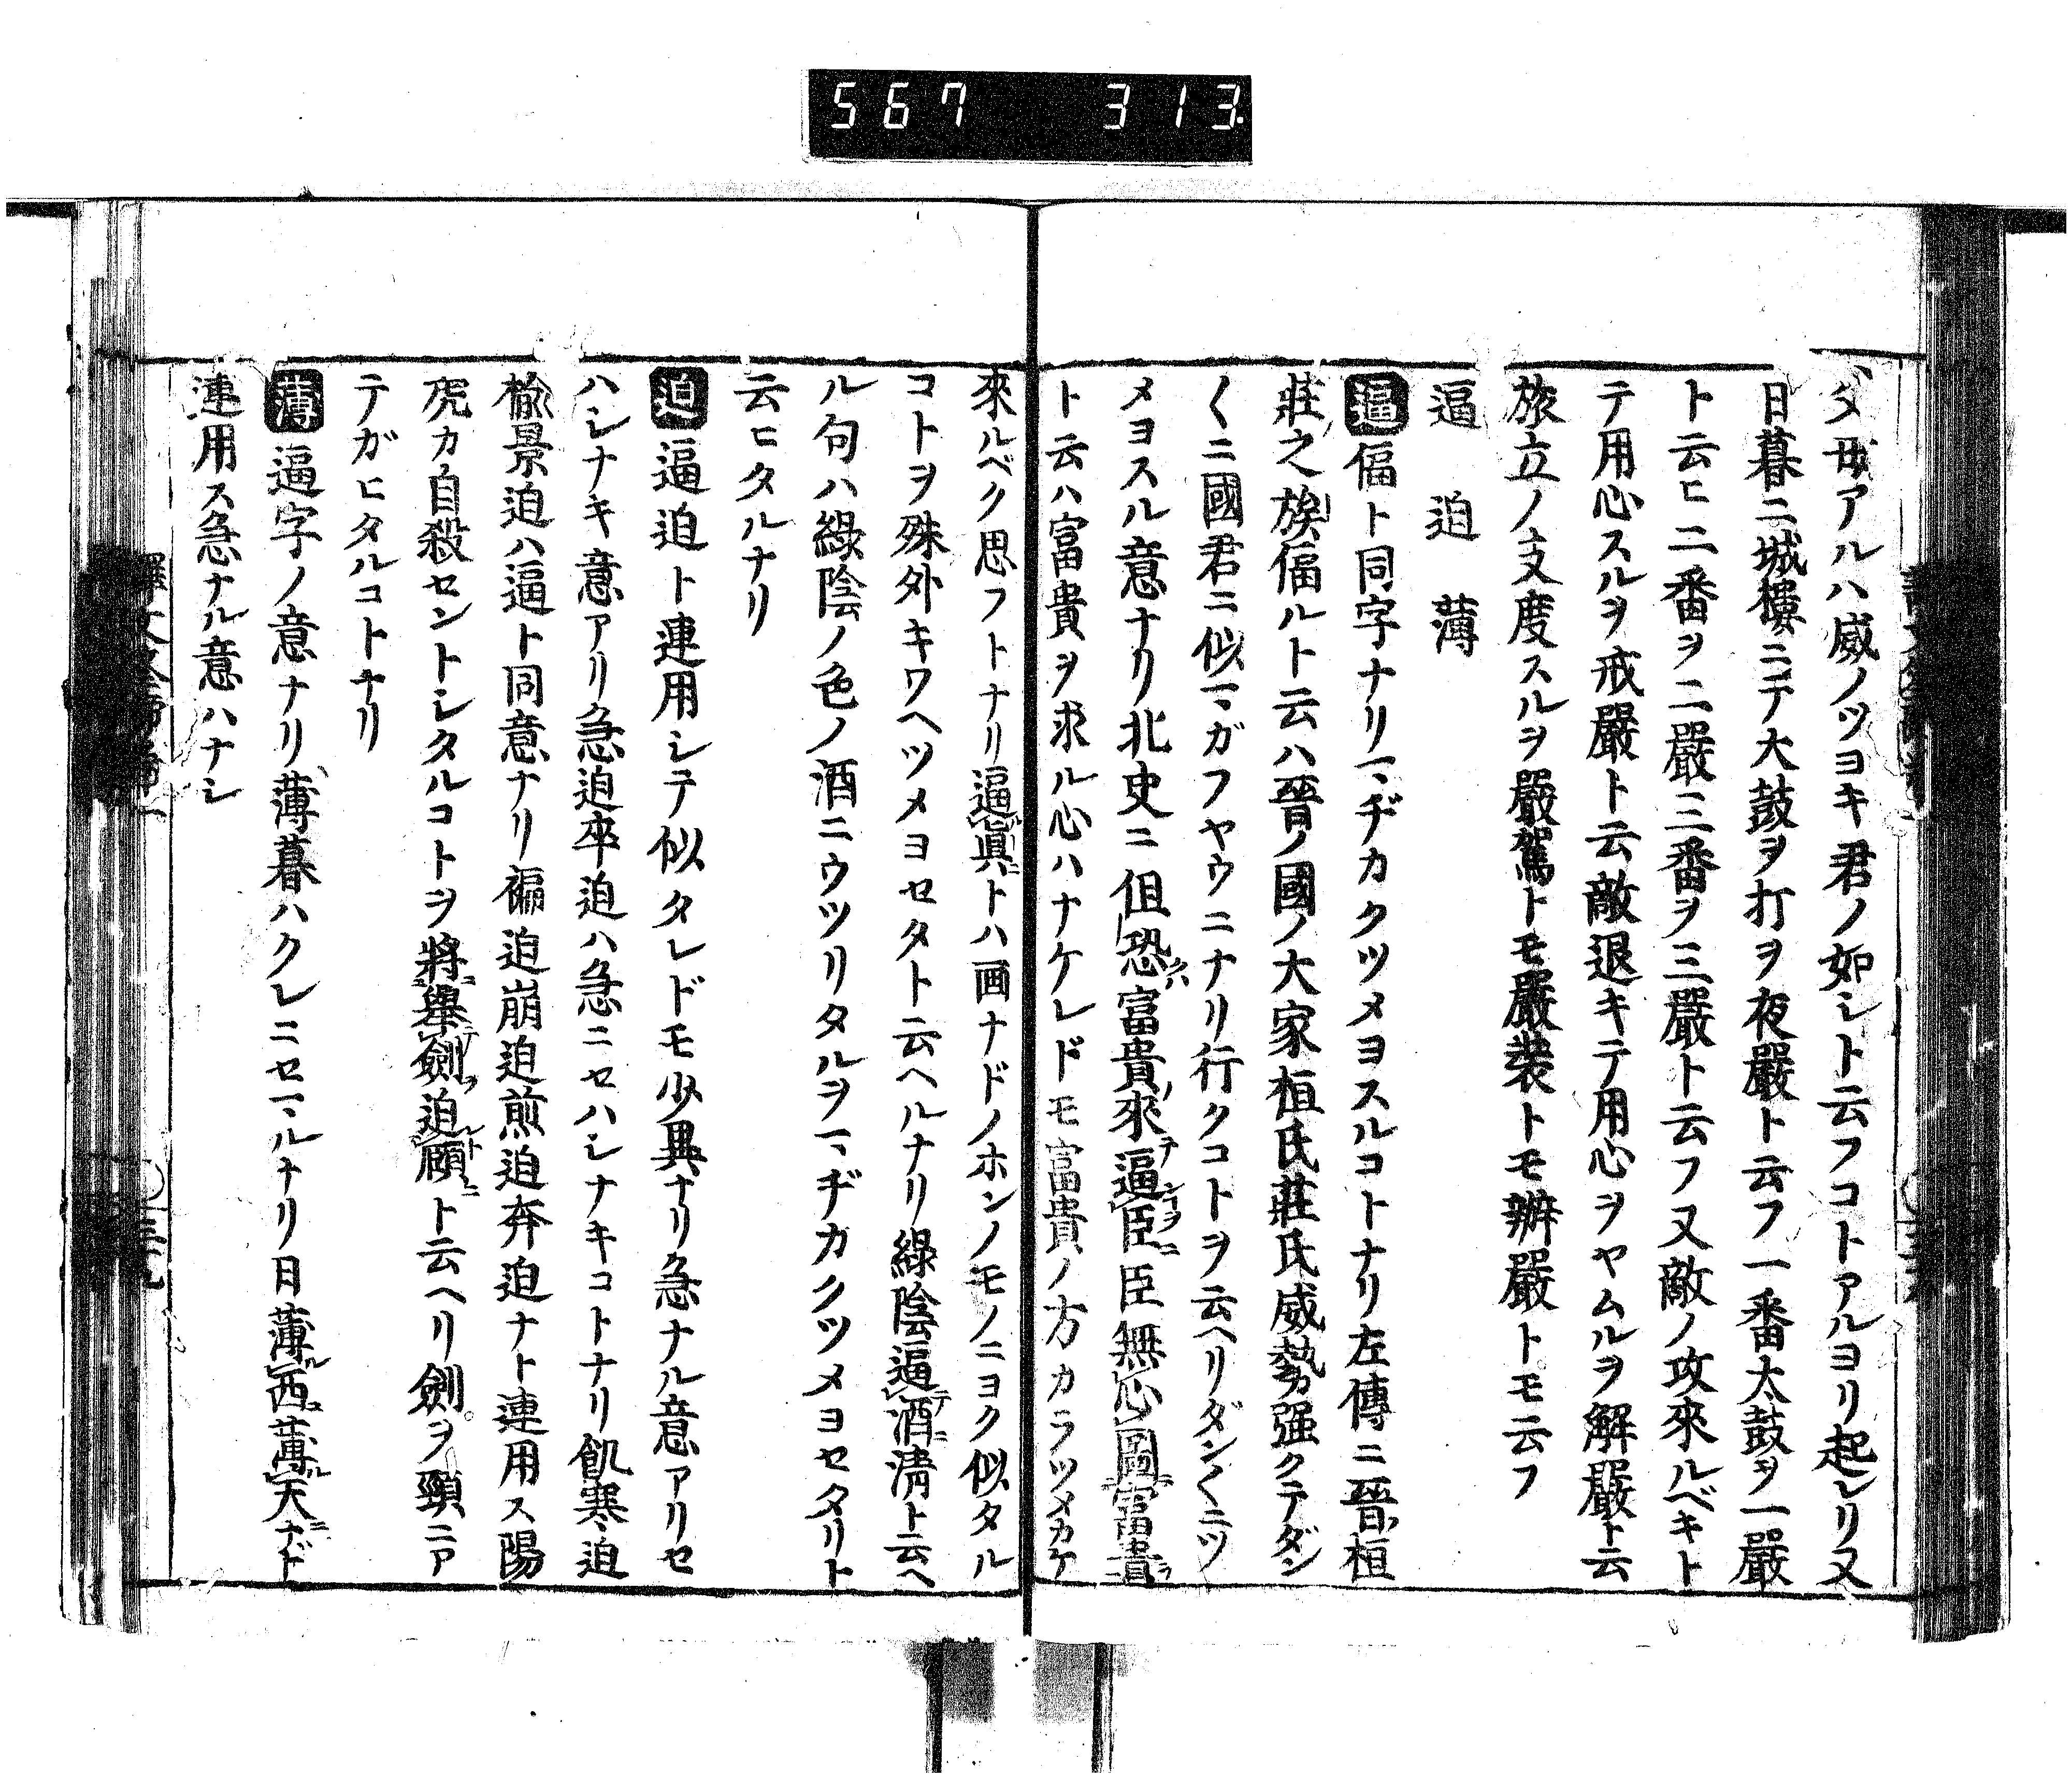 567 313.
父母アルハ威ノツヨキ君ノ如シト云フコトアルヨリ起レリ又
日暮ニ城樓ニテ大鼓ヲ打ヲ夜嚴ト云フ一番太鼓ヲ一嚴
ト云ヒ二番ヲ二嚴三番ヲ三嚴ト云フ又敵ノ攻來ルベキト
テ用心スルヲ戒嚴ト云敵退キテ用心ヲヤムルヲ解嚴ト云
旅立ノ支度スルヲ嚴駕トモ嚴裝トモ辦嚴トモ云フ
逼 迫 薄
逼 偪ト同字ナリマヂカクツメヨスルコトナリ左傳ニ晉桓
莊之族偪ルト云ハ晉ノ國ノ大家桓氏莊氏威勢强クテダン
〱ニ國君ニ似マガフヤウニナリ行クコトヲ云ヘリダン〱ニツ
メヨスル意ナリ北史ニ但恐クハ富貴ノ來テ逼ンヿヲ臣ニ臣無心圖富貴
ト云ハ富貴ヲ求ル心ハナケレドモ富貴ノ方カラツメカケ
來ルベク思フトナリ逼眞ニトハ画ナドノホンノモノニヨク似タル
コトヲ殊外キワヘツメヨセタト云ヘルナリ綠陰逼テ酒ニ淸ト云ヘ
ル句ハ綠陰ノ色ノ酒ニウツリタルヲマヂカクツメヨセタリト
云ヒタルナリ
迫 逼迫ト連用シテ似タレドモ少異ナリ急ナル意アリセ
ハシナキ意アリ急迫卒迫ハ急ニセハシナキコトナリ飢寒迫
楡景迫ハ逼ト同意ナリ褊迫崩迫煎迫奔迫ナト連用ス陽
虎カ自殺セントシタルコトヲ將ニ擧テ劍ヲ迫ルト頤ニト云ヘリ劍ヲ頸ニア
テガヒタルコトナリ
薄 逼字ノ意ナリ薄暮ハクレニセマルナリ日薄ル西ニ薄ル天ニナド
連用ス急ナル意ハナシ